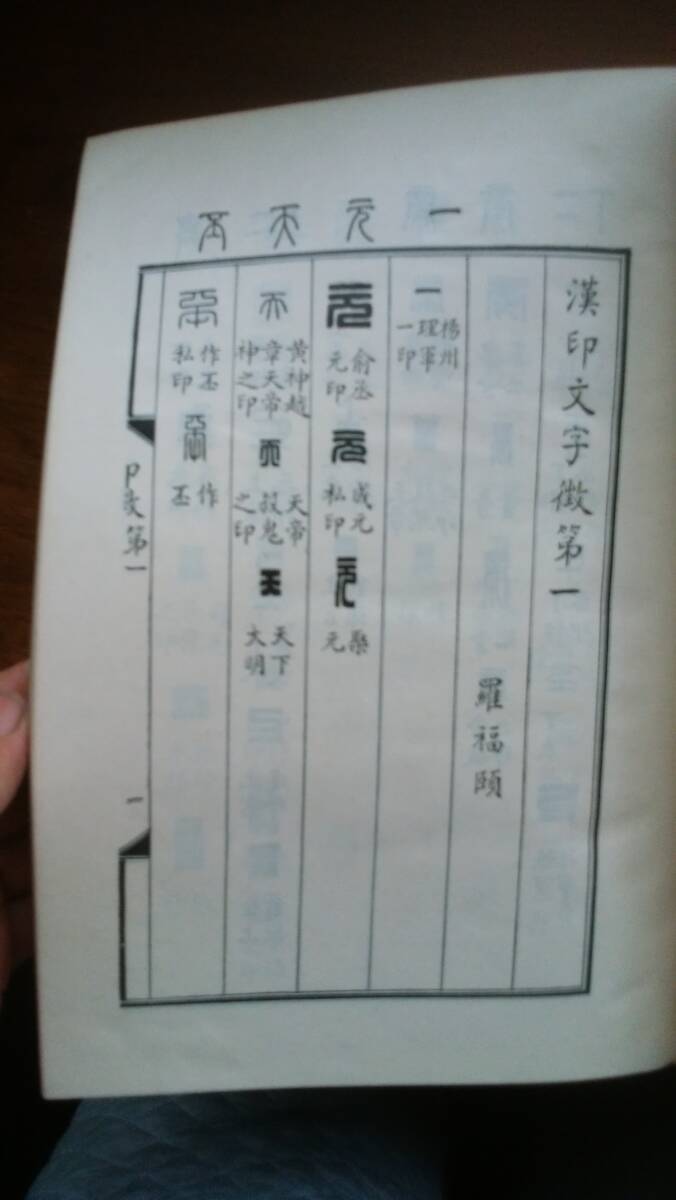 一 元 天 丕
漢印文字徵第一
羅福頤
一 楊州理軍一印
元 俞丞元印 元 成元私印 元 聚元
天 黃神越章天帝神之印 天 天帝殺鬼之印 天 天下大明
丕 作丕私印 丕 作丕
印文第一
一